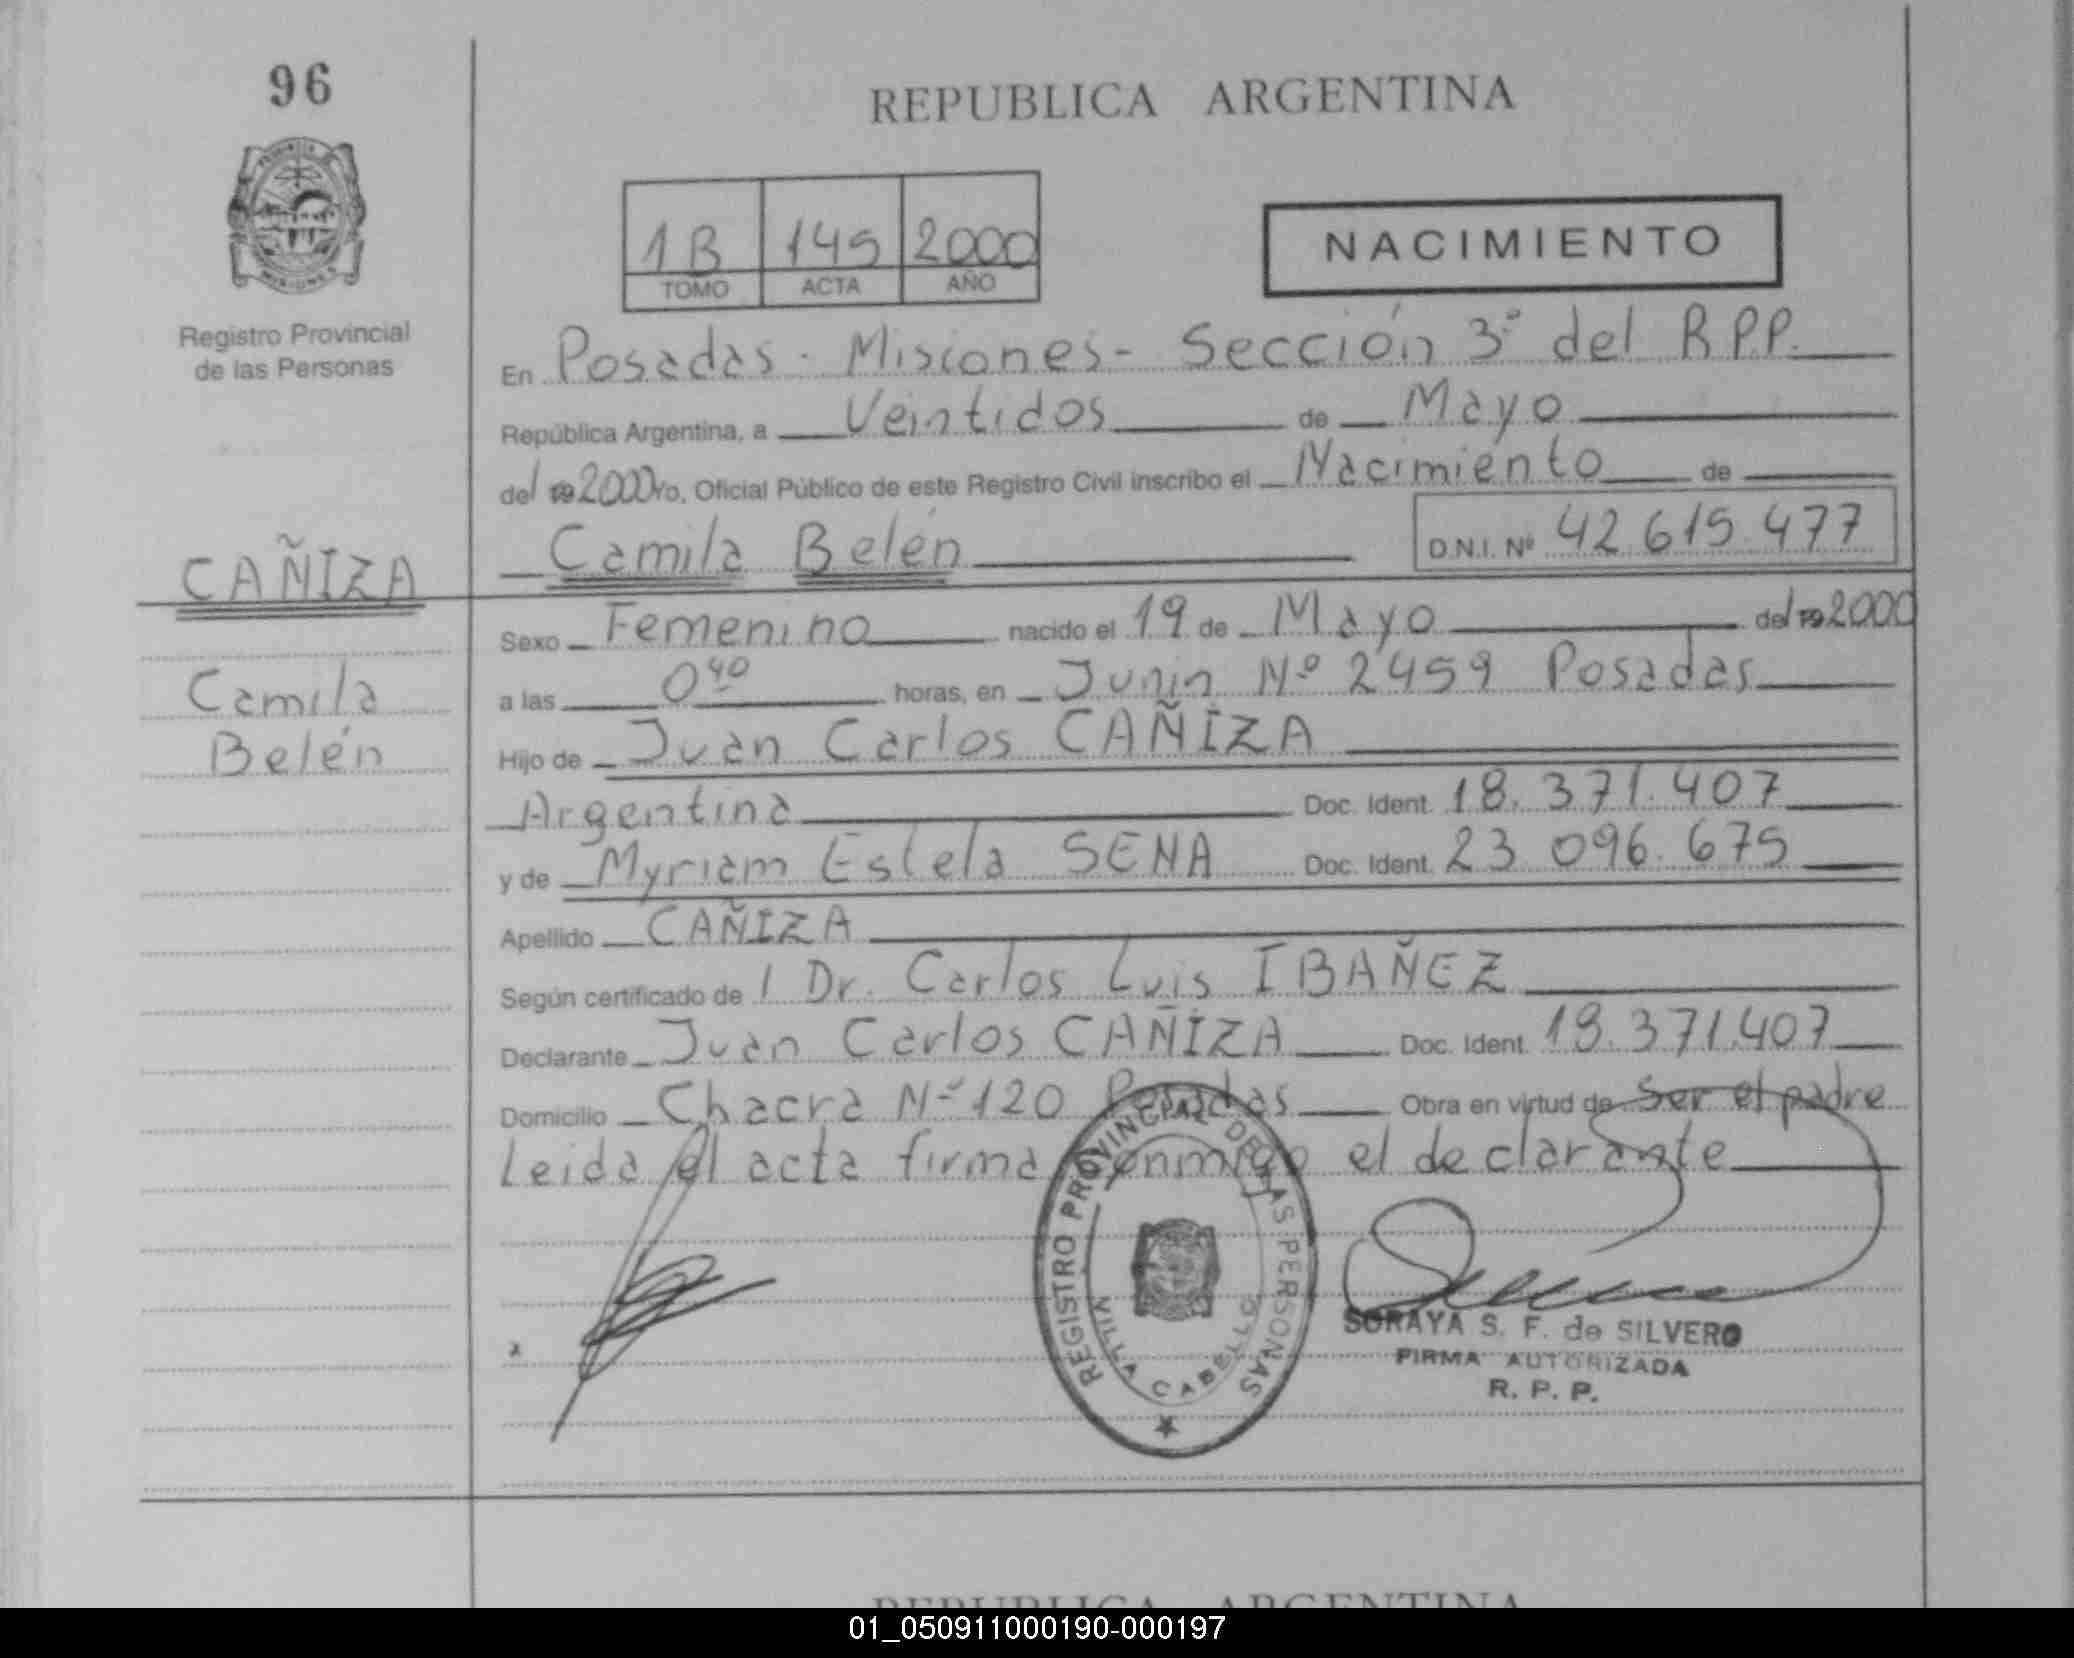 96
REPUBLICA ARGENTINA
1B 145 2000
TOMO ACTA AÑO
NACIMIENTO
Registro Provincial
de las Personas
En Posadas - Misiones - Sección 3º del R.P.P.
República Argentina, a Veintidos de Mayo
del 19 2000 Yo, Oficial Público de este Registro Civil inscribo el Nacimiento de
Camila Belén D.N.I. Nº 42.615.477
CAÑIZA
Camila
Belén
Sexo Femenino nacido el 19 de Mayo del 19 2000
a las 0 40 horas, en Junin Nº 2459 Posadas
Hijo de Juan Carlos CAÑIZA
Argentina Doc. Ident. 18.371.407
y de Myriam Estela SENA Doc. Ident. 23 096.675
Apellido CAÑIZA
Según certificado de l Dr. Carlos Luis IBAÑEZ
Declarante Juan Carlos CAÑIZA Doc. Ident. 18.371.407
Domicilio Chacra Nº 120 Posadas Obra en virtud de Ser el padre
Leida el acta firma conmigo el declarante
REGISTRO PROVINCIAL DE LAS PERSONAS
VILLA CABELLO
SORAYA S. F. de SILVERO
FIRMA AUTORIZADA
R. P. P.
REPUBLICA ARGENTINA
01_050911000190-000197